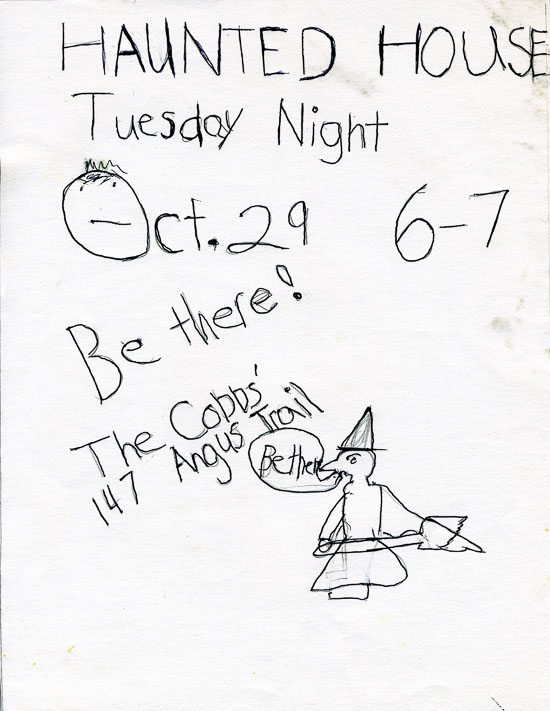 HAUNTED HOUSE
Tuesday Night
Oct. 29 6-7
Be there!
The Cobbs'
147 Angus Trail
Be there